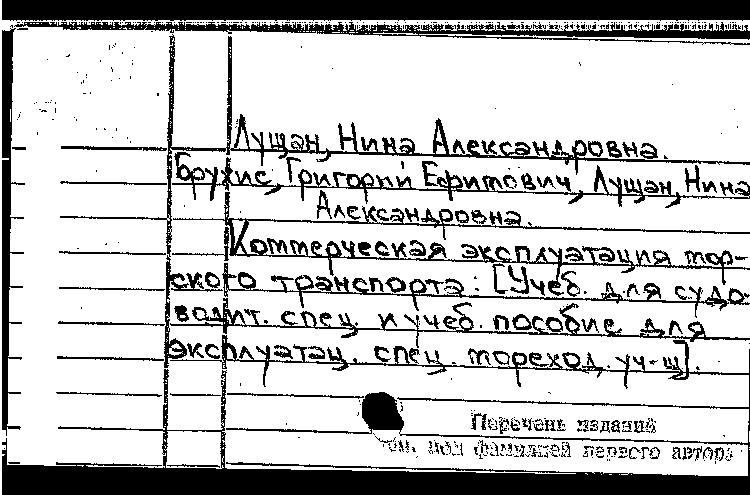 Лущан, Нина Александровна.
Брухис, Григорий Ефимович, Лущан, Нина
Александровна.
Коммерческая эксплуатация мор-
ского транспорта: [Учеб. для судо-
водит. спец. и учеб. пособие для
эксплуатац. спец. мореход. уч-щ].
Перечень изданий
см. под фамилией первого автора